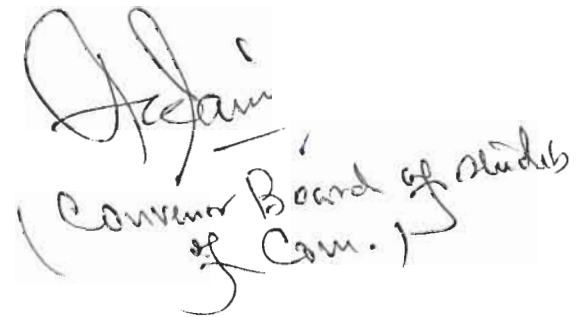 (Convenor Board of studies
of Com.)